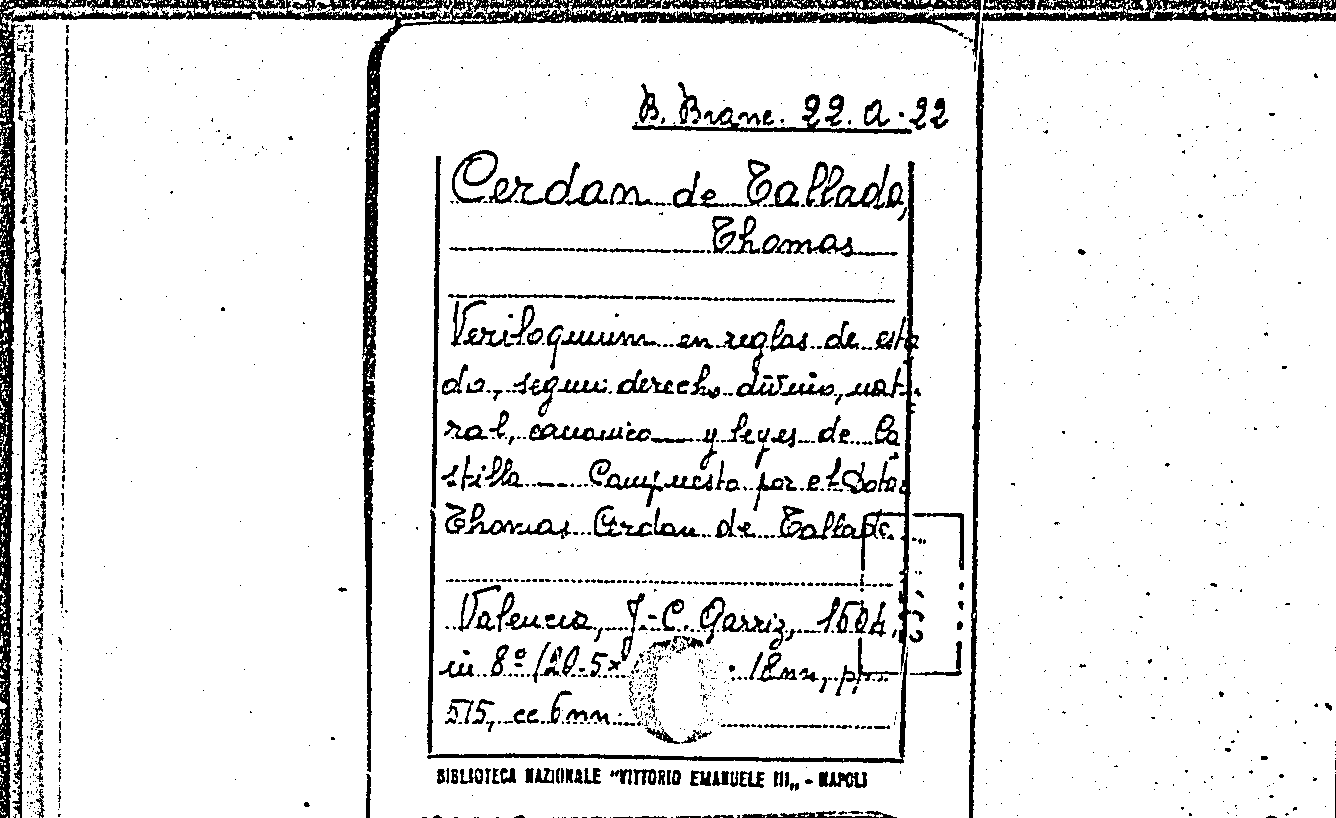 B. Branc. 22. A. 22
Cerdan de Tallada,
Thomas
Veriloquium en reglas de esta
do, segun derecho divino, natu
ral, canonico y leyes de Ca
stilla Compuesto por el Dotor
Thomas Cerdan de Tallada
Valencia, J.-C. Garriz, 1604,
in 8° (20.5x 18nn, pp.
515, cc 6nn.
BIBLIOTECA NAZIONALE "VITTORIO EMANUELE III„ - NAPOLI